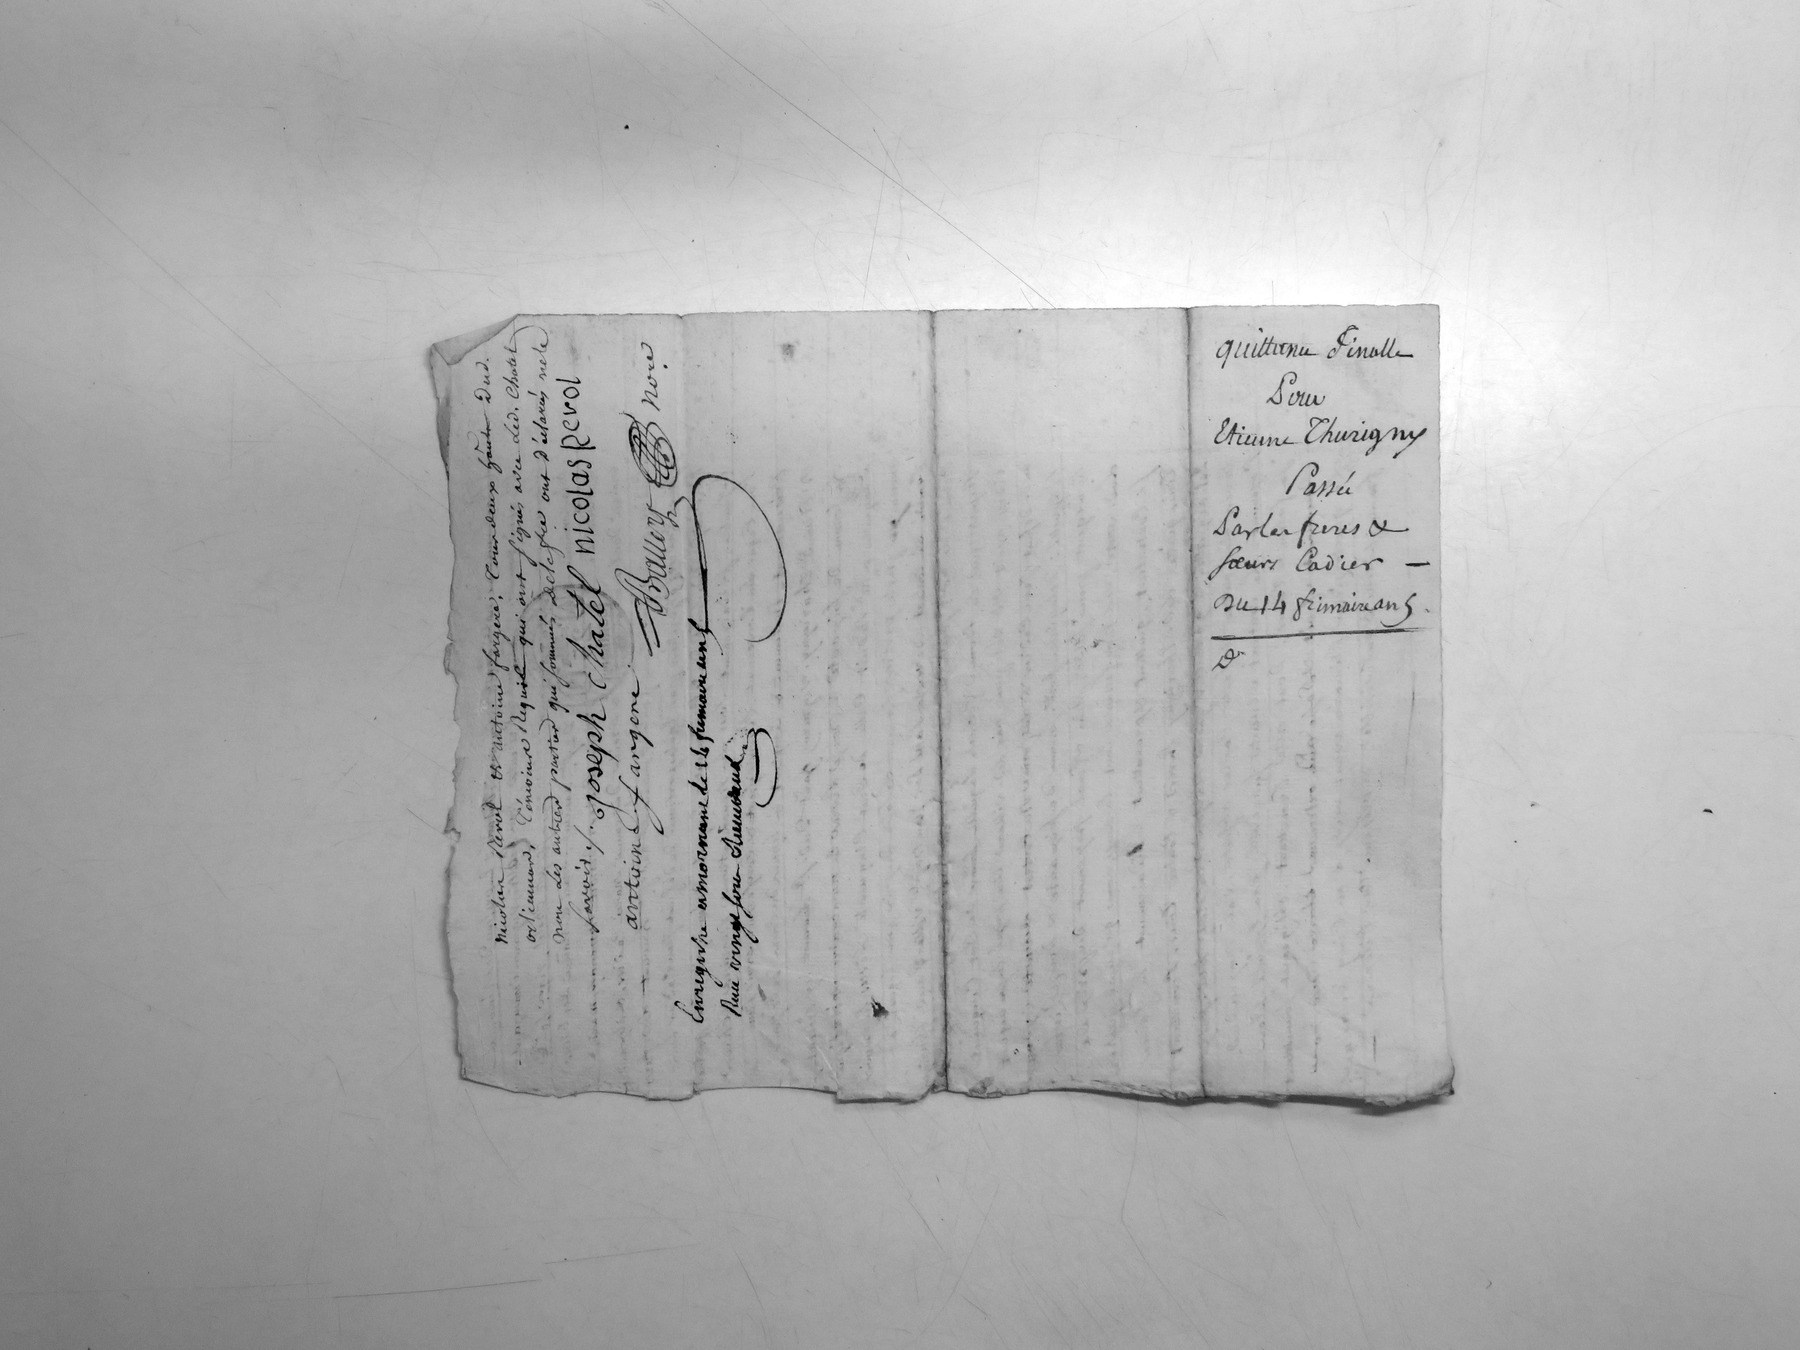 Nicolas Revol et antoine fargere, tour deux habitt. Dud.
orlienand, Témoins Requit qui ont signés avec Led. Chatel
non Les autres parties qui sommés de le fre ont d'éclarés ne le
savoir /.
joseph chatel nicolas Revol
antoine fargere
Ballery nore
Enregistré a mornant le 14 frimaire an 5
Reçu vingt sous
quittance Finalle
Pour
Etienne Thurigny
Passée
Par les freres &
sœurs Cadier —
Du 14 frimaire an 5.